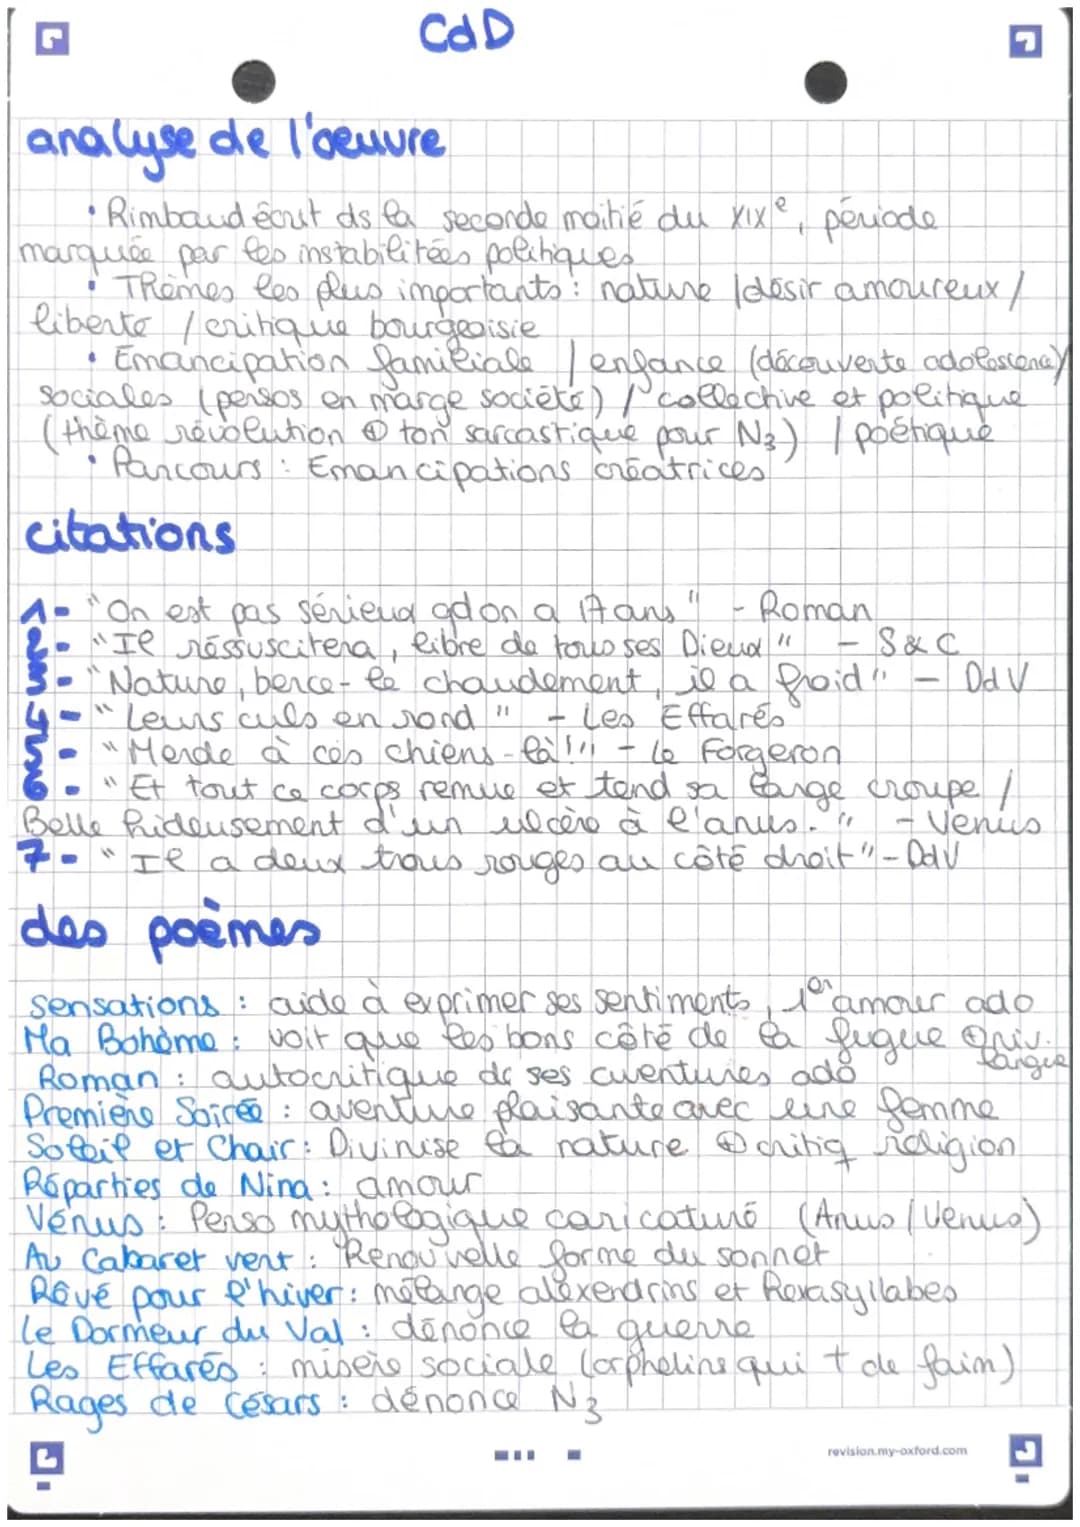 CdD
analyse de l'oeuvre
• Rimbaud écrit ds la seconde moitié du XIXe, période
marquée par les instabilitées politiques
• Thèmes les plus importants : nature / désir amoureux /
liberté / critique bourgeoisie
• Emancipation familiale / enfance (découverte adolescence)/
sociales (persos en marge société) / collective et politique
(thème révolution ⊕ ton sarcastique pour N3) / poétique
• Parcours : Emancipations créatrices
citations
1- "On est pas sérieux qdon a 17 ans" - Roman
2- "Il réssuscitera, libre de tous ses Dieux" - S&C
3- "Nature, berce-le chaudement, il a froid" - DdV
4- "Leurs culs en rond" - Les Effarés
5- "Merde à ces chiens-là!" - Le Forgeron
6- "Et tout ce corps remue et tend sa large croupe /
Belle hideusement d'un ulcère à l'anus." - Venus
7- "Il a deux trous rouges au côté droit" - DdV
des poèmes
Sensations : aide à exprimer ses sentiments, 1er amour ado
Ma Bohème : voit que les bons côté de la fugue ⊕ niv.
langue
Roman : autocritique de ses aventures ado
Première Soirée : aventure plaisante avec une femme
Soleil et Chair : Divinise la nature ⊕ critiq religion
Réparties de Nina : amour
Vénus : Perso mythologique caricaturé (Anus/Venus)
Au Cabaret vert : Renouvelle forme du sonnet
Rêvé pour l'hiver : mélange alexendrins et hexasyllabes
Le Dormeur du Val : dénonce la guerre
Les Effarés : misère sociale (orphelins qui † de faim)
Rages de Césars : dénonce N3
revision.my-oxford.com